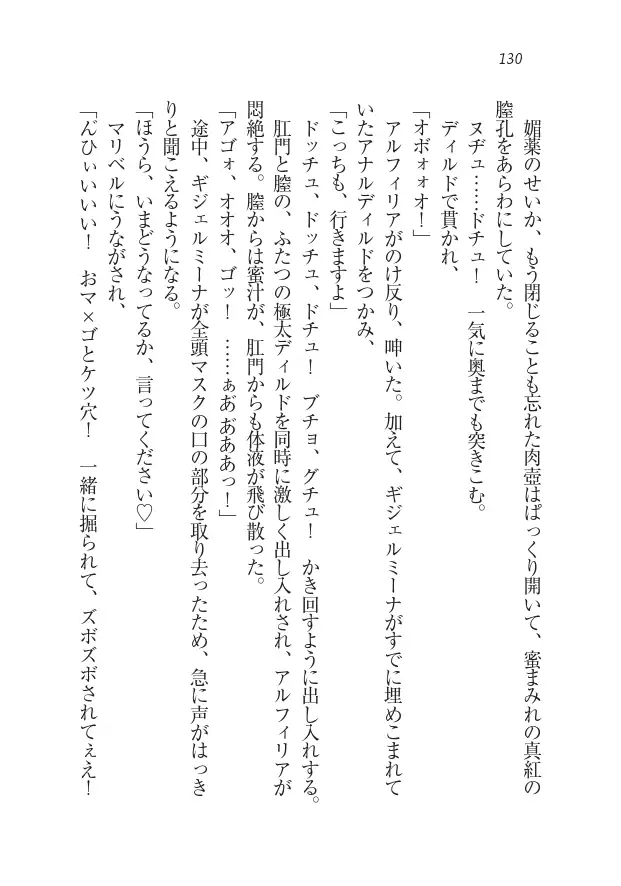 130
媚薬のせいか、もう閉じることも忘れた肉壺はぱっくり開いて、蜜まみれの真紅の
膣孔をあらわにしていた。
ヌヂュ……ドチュ！　一気に奥までも突きこむ。
ディルドで貫かれ、
「オボォォオ！」
アルフィリアがのけ反り、呻いた。加えて、ギジェルミーナがすでに埋めこまれて
いたアナルディルドをつかみ、
「こっちも、行きますよ」
ドッチュ、ドッチュ、ドチュ！　ブチョ、グチュ！　かき回すように出し入れする。
肛門と膣の、ふたつの極太ディルドを同時に激しく出し入れされ、アルフィリアが
悶絶する。膣からは蜜汁が、肛門からも体液が飛び散った。
「アゴォ、オオオ、ゴッ！　……ぁあ゛ぢああっ！」
途中、ギジェルミーナが全頭マスクの口の部分を取り去ったため、急に声がはっき
りと聞こえるようになる。
「ほうら、いまどうなってるか、言ってください♡」
マリベルにうながされ、
「ん゛ひぃいいい！　おマ×ゴとケツ穴！　一緒に掘られて、ズボズボされてぇえ！